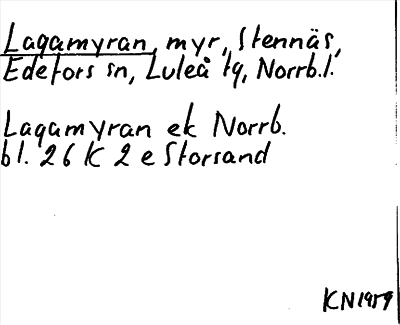 Lagamyran, myr, Stennäs,
Edefors sn, Luleå tg, Norrb.l.
Lagamyran ek Norrb.
bl. 26 K 2 e Storsand
KN 1959